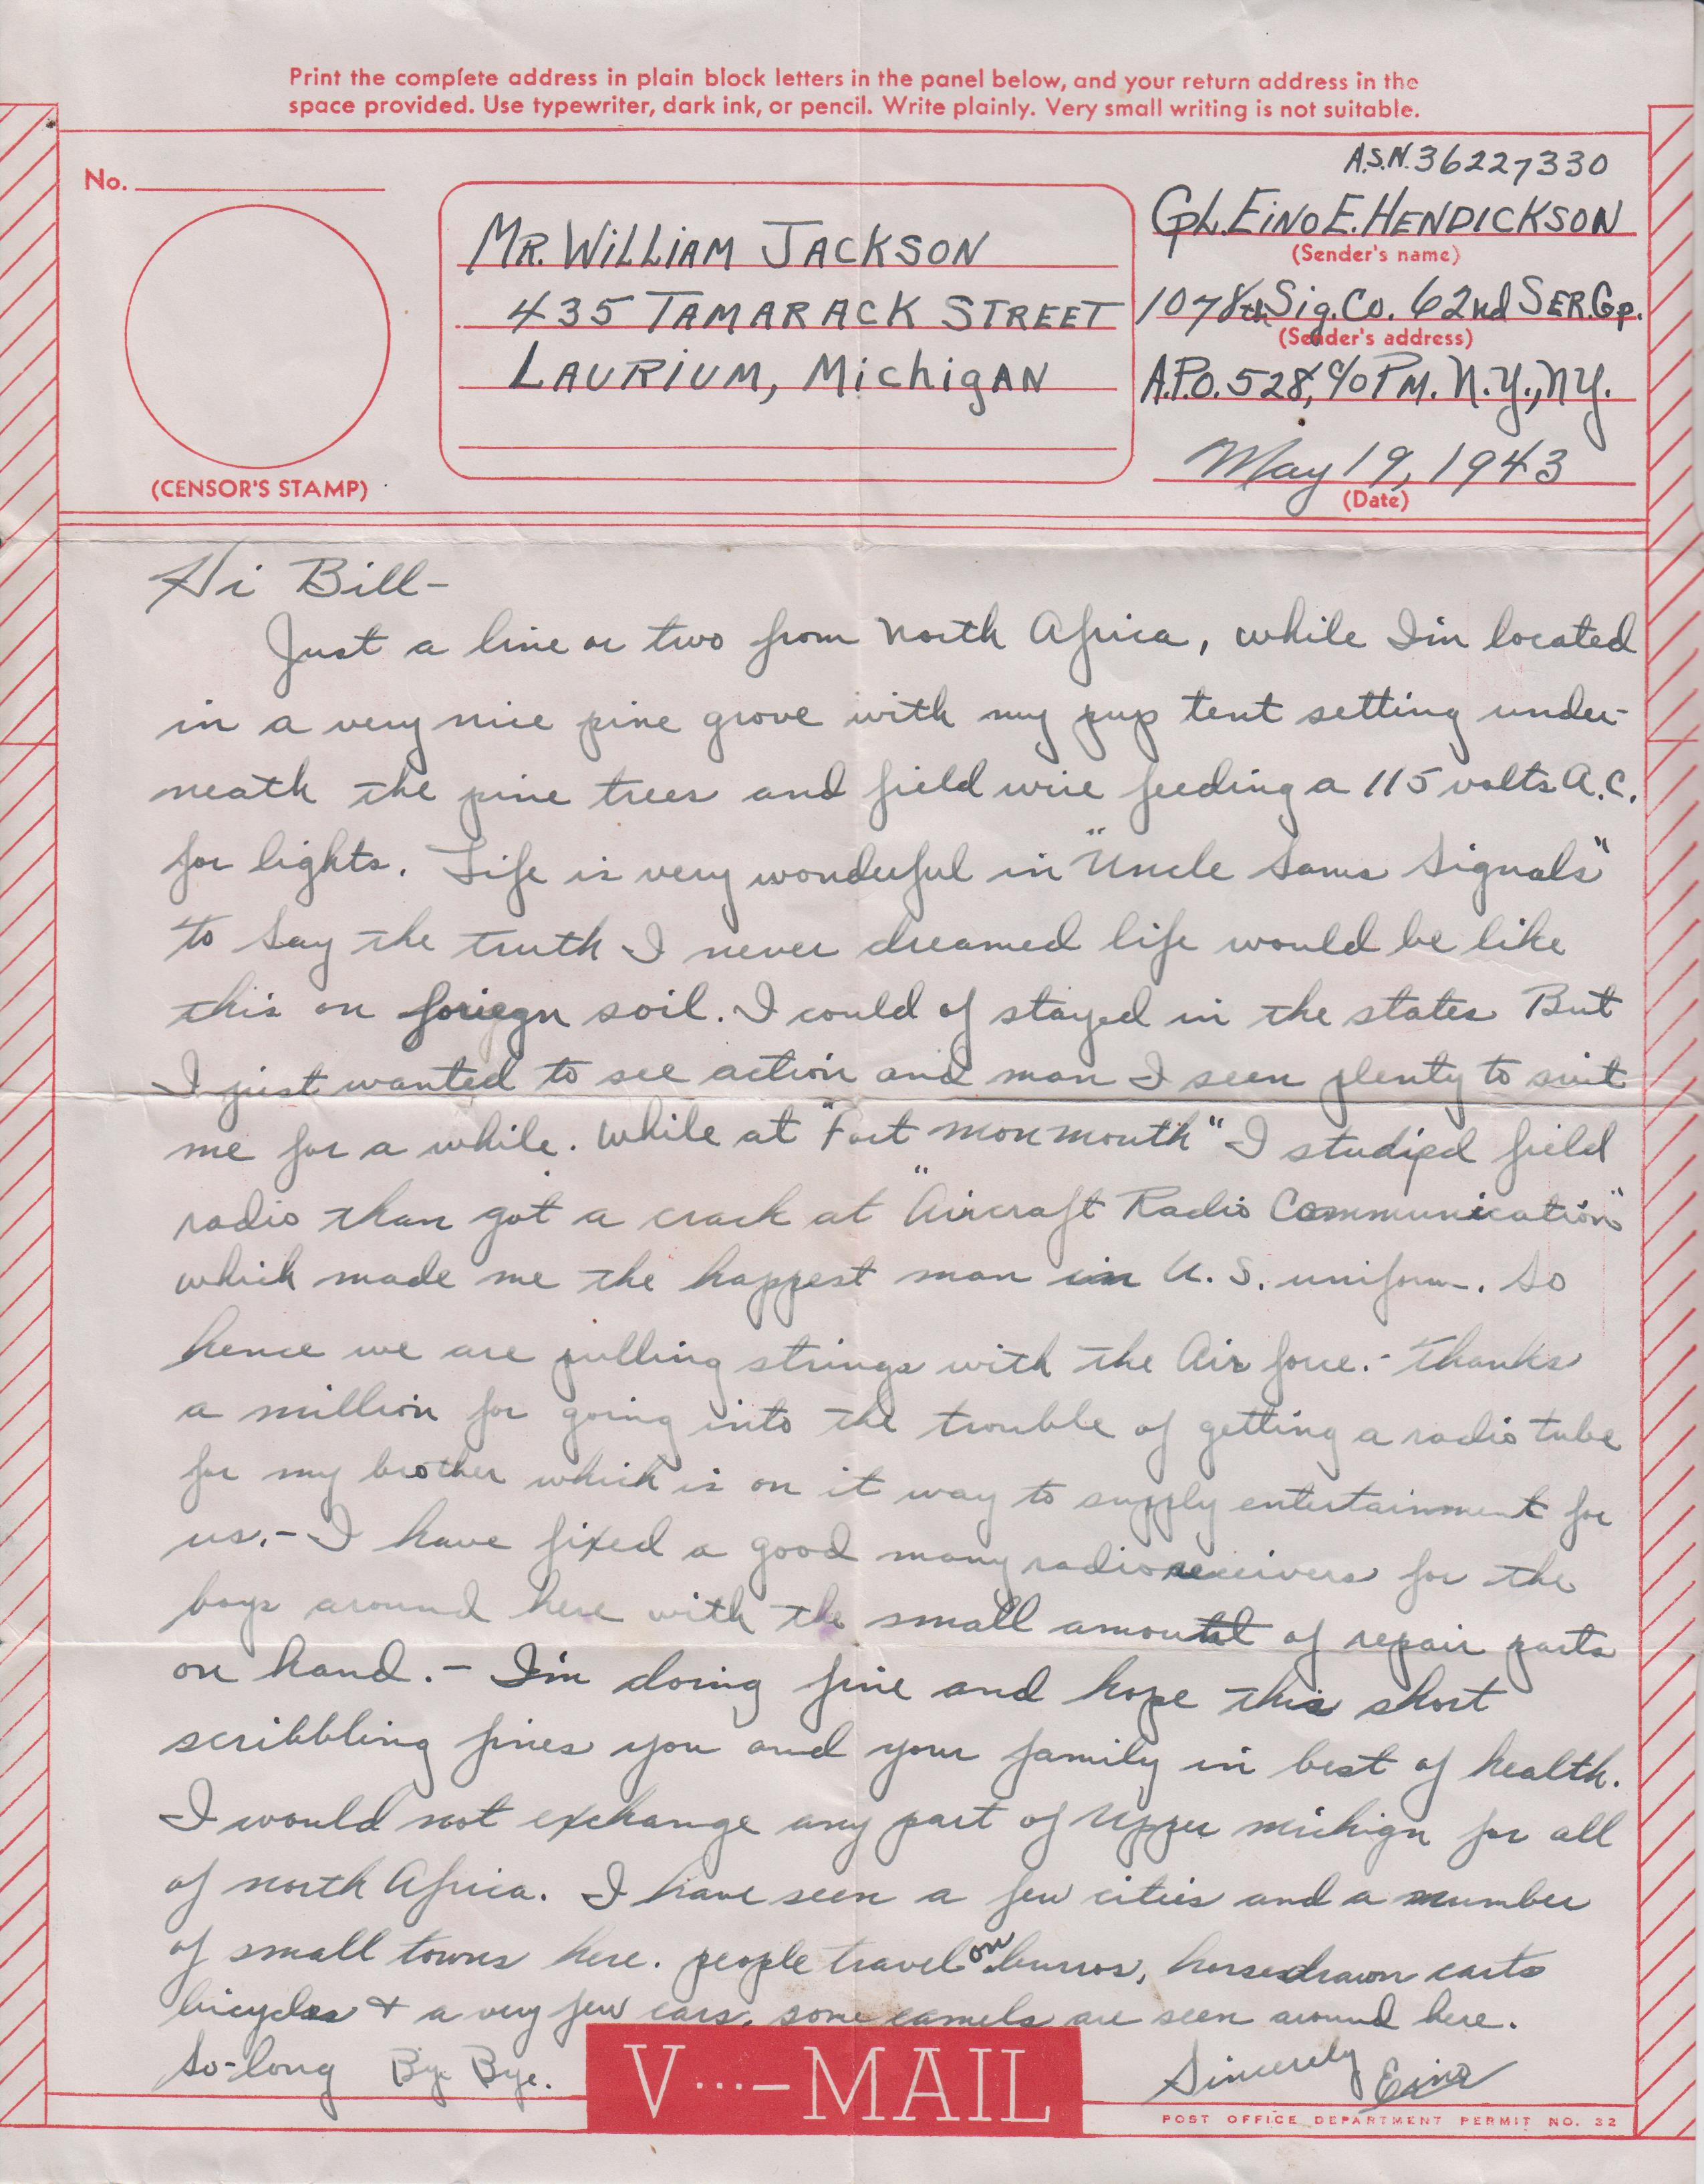 Print the complete address in plain block letters in the panel below, and your return address in the
space provided. Use typewriter, dark ink, or pencil. Write plainly. Very small writing is not suitable.
No.
(CENSOR'S STAMP)
MR. WILLIAM JACKSON
435 TAMARACK STREET
LAURIUM, MichigAN
A.S.N. 36227330
CpL. EINO E. HENDICKSON
(Sender's name)
1078th Sig. Co. 62nd SER. Gp.
(Sender's address)
A.P.O. 528, c/o P.M. N.Y., N.Y.
May 19, 1943
(Date)
Hi Bill-
Just a line or two from North Africa, while I'm located
in a very nice pine grove with my pup tent setting under-
neath the pine trees and field wire feeding a 115 volts A.C.
for lights. Life is very wonderful in "Uncle Sams Signals"
to say the truth I never dreamed life would be like
this on foriegn soil. I could of stayed in the states But
I just wanted to see action and man I seen plenty to suit
me for a while. While at "Fort monmouth" I studied field
radio than got a crack at "Aircraft Radio Communication"
which made me the happest man in U.S. uniform. So
hence we are pulling strings with the Air force.- Thanks
a million for going into the trouble of getting a radio tube
for my brother which is on it way to supply entertainment for
us.- I have fixed a good many radio receivers for the
boys around here with the small amount of repair parts
on hand.- I'm doing fine and hope this short
scribbling fines you and your family in best of health.
I would not exchange any part of Upper michign for all
of north Africa. I have seen a few cities and a number
of small towns here. people travel on burros, horsedrawn carts
bicycles + a very few cars, some camels are seen around here.
So-long Bye Bye.
Sincerely Eino
V···— MAIL
POST OFFICE DEPARTMENT PERMIT NO. 32